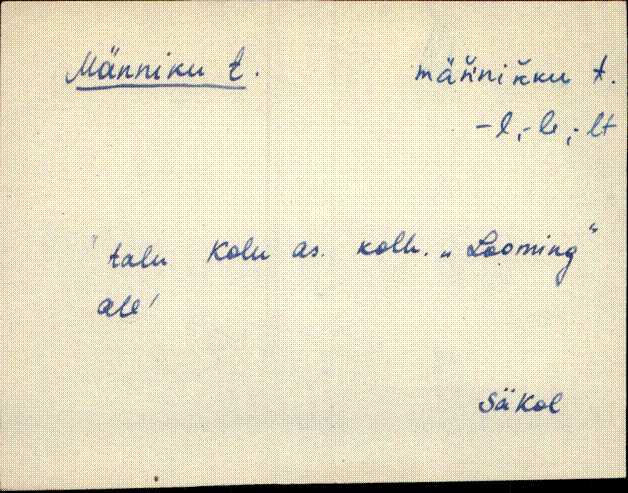 Männiku t. män̆nik̆ku t.
-l, -le, -lt
talu Kolu as. kolh. „Looming"
al!
SäKol